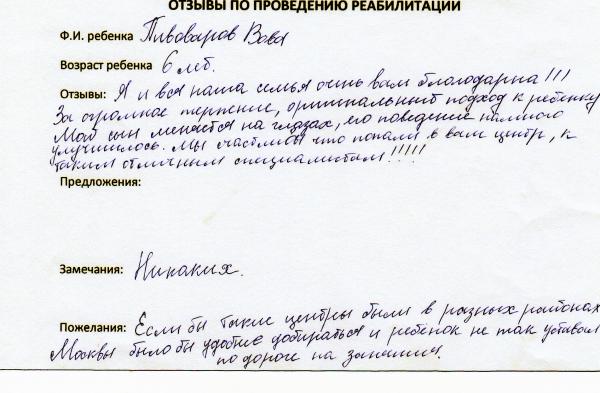 ОТЗЫВЫ ПО ПРОВЕДЕНИЮ РЕАБИЛИТАЦИИ
Ф.И. ребенка Пивоваров Вова
Возраст ребенка 6 лет.
Отзывы: Я и вся наша семья очень вам благодарна!!!
За огромное терпение, оригинальный подход к ребенку
Мой сын меняется на глазах, его поведение намного
улучшилось. Мы счастливы что попали в ваш центр, к
таким отличным специалистам!!!!!
Предложения:
Замечания: Никаких.
Пожелания: Если бы такие центры были в разных районах
Москвы было бы удобнее добираться и ребенок не так уставал
по дороге на занятия.